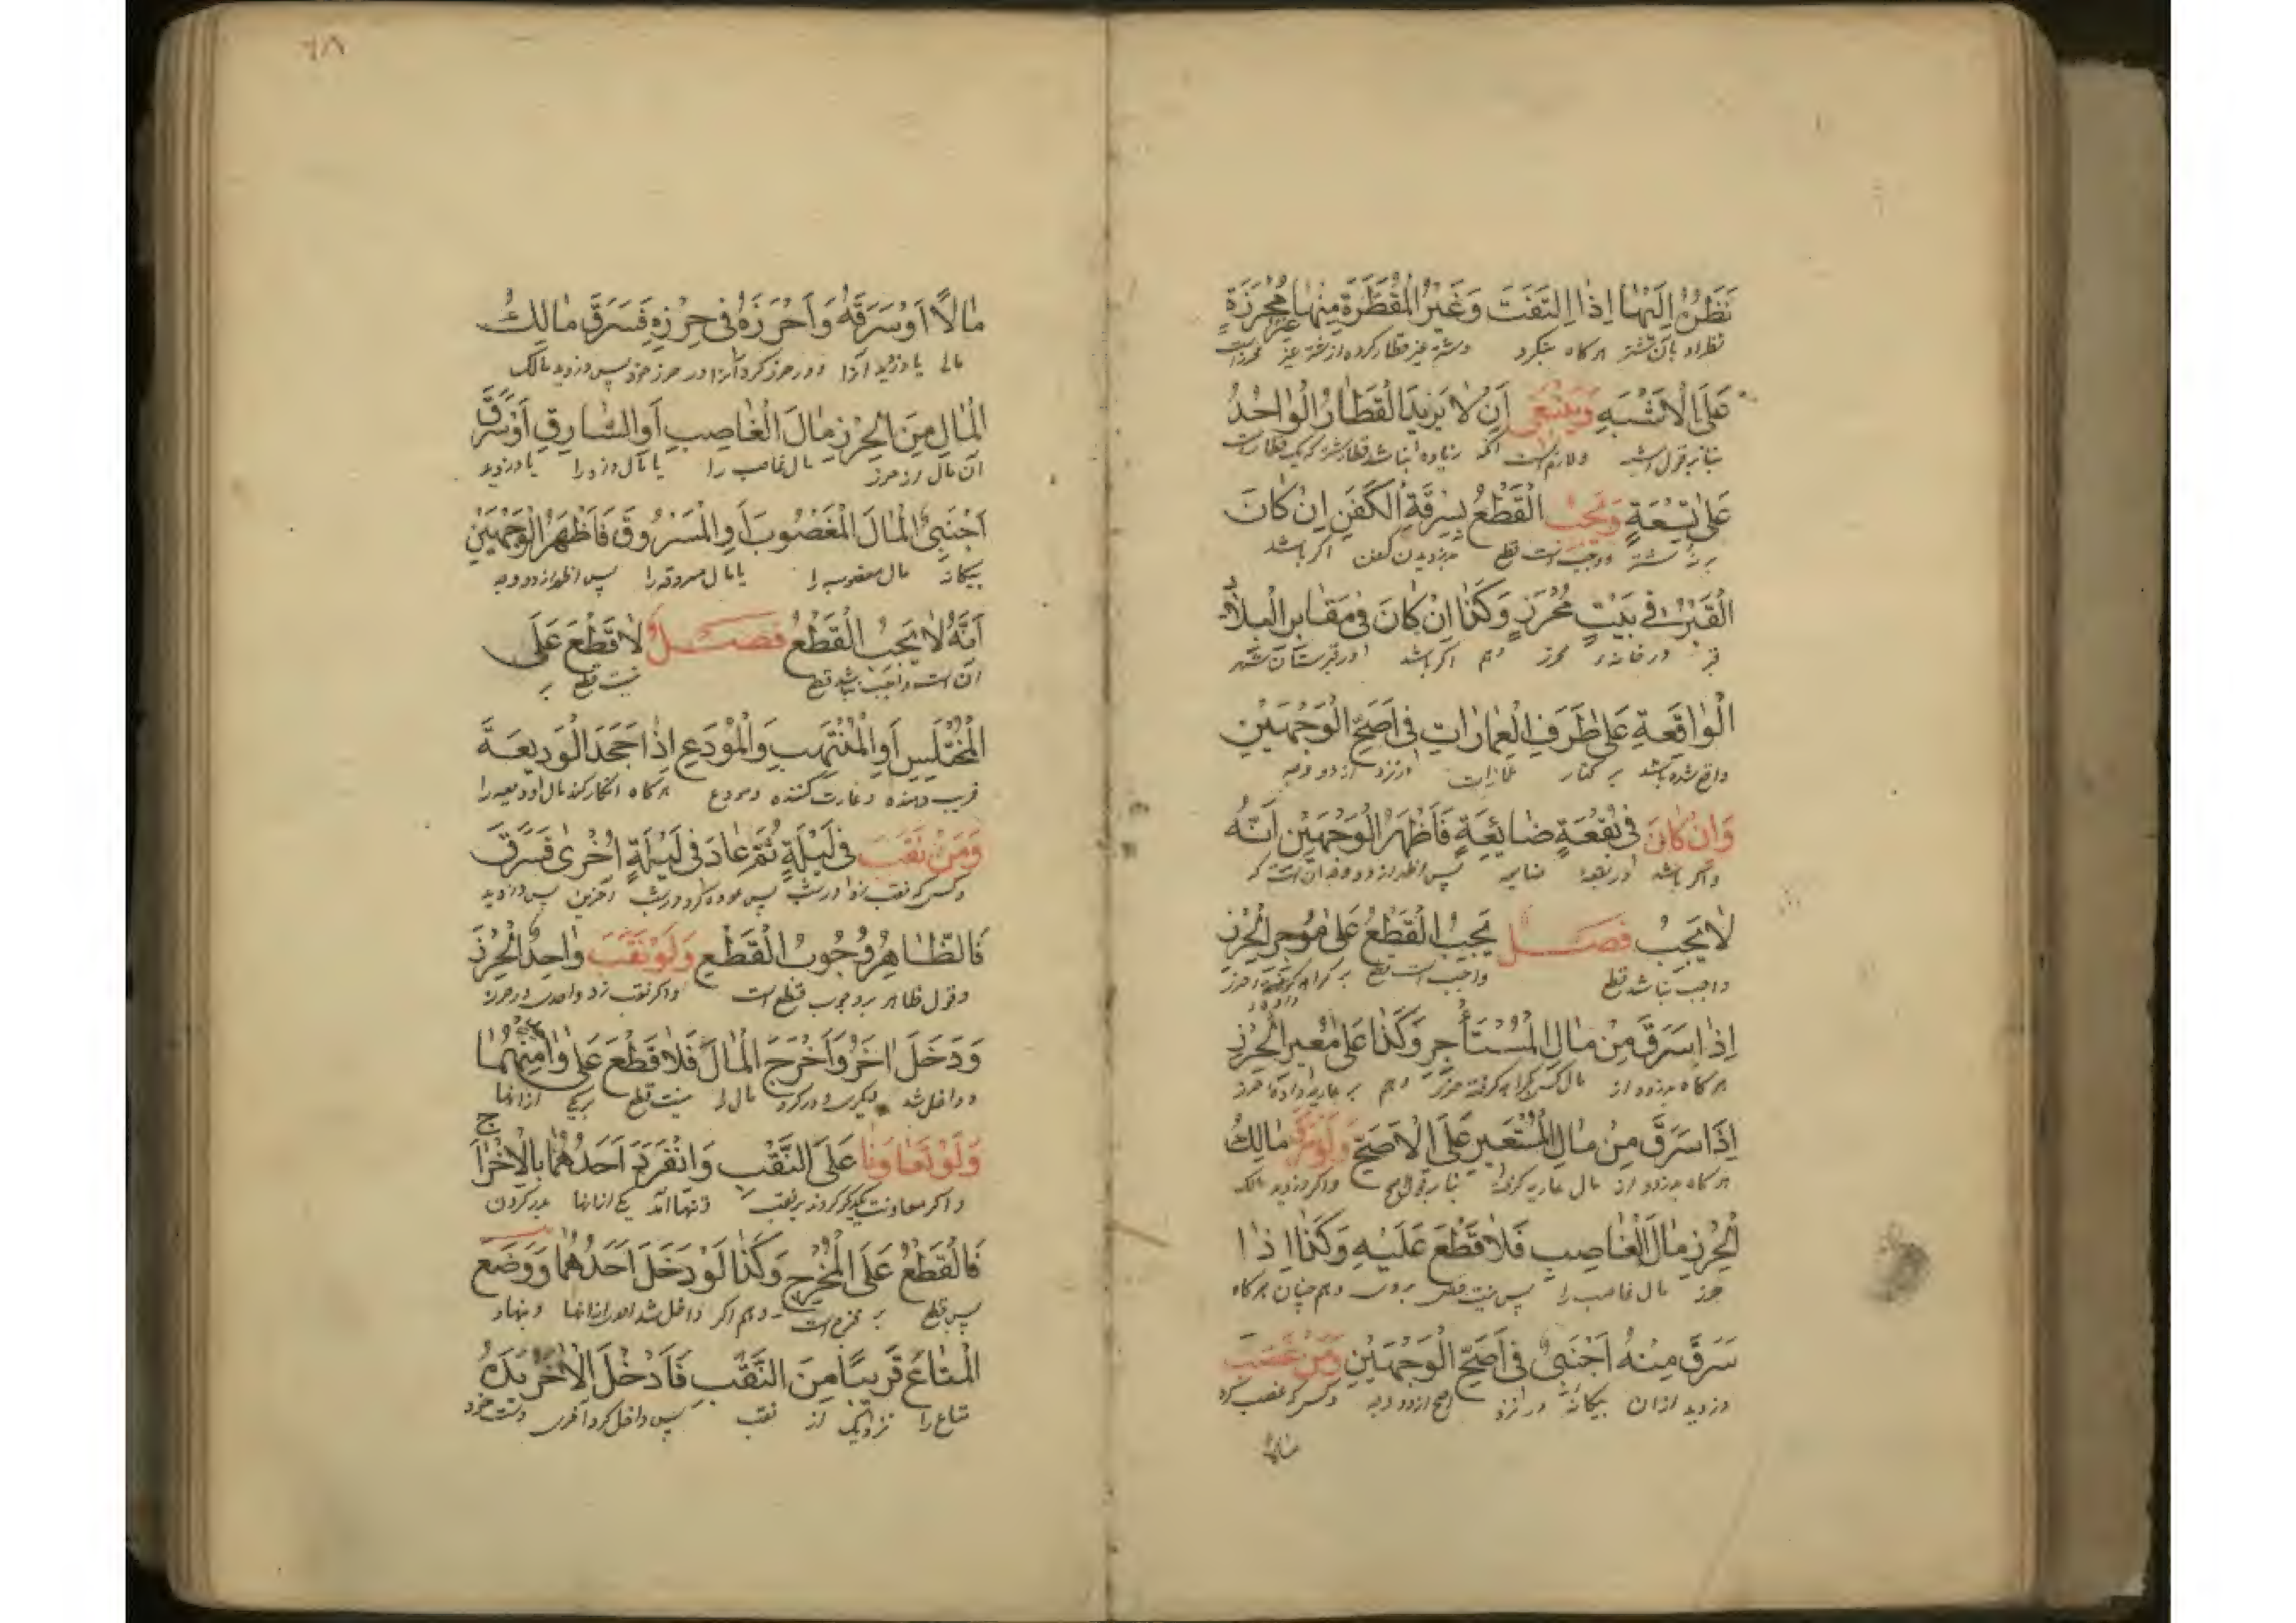 نَظَرُهُ اِلَيْهَا اِذَا اِلْتَفَتَ وَغَيْرُ الْمُقَطَّرَةِ مِنْهَا غير مُحْرَزَةٍ
نظر او بآن شتر هرگاه بنگرد وشتر غیر قطار کرده از شتر غیر محرز است
عَلَى الْاَشْبَهِ وَيَنْبَغِى اَنْ لَا يَزِيدَ الْقِطَارُ الْوَاحِدُ
بنابر قول اشبه ولازم است آنکه زیاده نباشد قطار شتر که یک قطار است
عَلَى تِسْعَةٍ وَيَجِبُ الْقَطْعُ بِسَرِقَةِ الْكَفَنِ اِنْ كَانَ
بر نه شتر وواجبست قطع بدزدیدن کفن اگر باشد
الْقَبْرُ فِى بَيْتٍ مُحْرَزٍ وَكَذَا اِنْ كَانَ فِى مَقَابِرِ الْبِلَادِ
قبر در خانهٔ محرز وهم اگر باشد در قبرستان شهر
الْوَاقِعَةِ عَلَى طَرَفِ الْعِمَارَاتِ فِى اَصَحِّ الْوَجْهَيْنِ
واقع شده باشد بر کنار عمارات از دو وجه
وَاِنْ كَانَ فِى بُقْعَةٍ ضَائِعَةٍ فَاَظْهَرُ الْوَجْهَيْنِ اَنَّهُ
واگر باشد در بقعهٔ ضایعه پس اظهر از دو وجه آن است که
لَا يَجِبُ فصل يَجِبُ الْقَطْعُ عَلَى مُوجِرِ الْحِرْزِ
واجب نباشد قطع واجب است قطع بر حرز
اِذَا سَرَقَ مِنْ مَالِ الْمُسْتَأْجِرِ وَكَذَا عَلَى مُعِيرِ الْحِرْزِ
هرگاه بدزدد از مال کسی کرایه گرفته حرز وهم بر عاریه داده حرز
اِذَا سَرَقَ مِنْ مَالِ الْمُسْتَعِيرِ عَلَى الْاَصَحِّ وَلَوْ سَرَقَ مَالِكُ
هرگاه بدزدد از مال عاریه گرفته بنابر قول اصح واگر دزدید مالک
الْحِرْزِ مَالَ الْغَاصِبِ فَلَا قَطْعَ عَلَيْهِ وَكَذَا اِذَا
حرز مال غاصب را پس نیست قطع بروی وهم چنان هرگاه
سَرَقَ مِنْهُ اَجْنَبِىٌّ فِى اَصَحِّ الْوَجْهَيْنِ وَمَنْ غَصَبَ
دزدید ازان بیگانه در اصح از دو وجه وکسی که غصب کرد
مَالًا اَوْ سَرَقَهُ وَاَحْرَزَهُ فِى حِرْزِهِ فَسَرَقَ مَالِكُ
مالی یا دزدید آنرا ودر حرز کرد آنرا در حرز خود پس دزدید مالک
الْمَالِ مِنَ الْحِرْزِ مَالَ الْغَاصِبِ اَوِ السَّارِقِ اَوْ سَرَقَ
آن مال از حرز مال غاصب را یا مال دزد را یا دزدید
اَجْنَبِىٌّ الْمَالَ الْمَغْصُوبَ اَوِ الْمَسْرُوقَ فَاَظْهَرُ الْوَجْهَيْنِ
بیگانه مال مغصوبه را یا مال مسروقه را پس اظهر از دو وجه
اَنَّهُ لَا يَجِبُ الْقَطْعُ فصل لَا قَطْعَ عَلَى
آن است واجب نباشد قطع نیست قطع بر
الْمُخْتَلِسِ اَوِ الْمُنْتَهِبِ وَالْمُوْدَعِ اِذَا جَحَدَ الْوَدِيعَةَ
فریب دهنده وغارت کننده ومودع هرگاه انکار کند مال ودیعه را
وَمَنْ نَقَبَ فِى لَيْلَةٍ ثُمَّ عَادَ فِى لَيْلَةٍ اُخْرَى فَسَرَقَ
وکسی که نقب زد در شب پس عوده کرد در شب آخرین پس دزدید
فَالظَّاهِرُ وُجُوبُ الْقَطْعِ وَلَوْ نَقَبَ وَاحِدٌ الْحِرْزَ
وقول ظاهر بر وجوب قطع است واگر نقب زد واحدی در حرز
وَدَخَلَ اٰخَرُ وَاَخْرَجَ الْمَالَ فَلَا قَطْعَ عَلَى وَاحِدٍ مِنْهُمَا
وداخل شد دیگری ودر کرد مال را نیست قطع بر یکی ازانها
وَلَوْ تَعَاوَنَا عَلَى النَّقْبِ وَانْفَرَدَ اَحَدُهُمَا بِالْاِخْرَاجِ
واگر معاونت یکدیگر کردند بر نقب وتنها آمد یکی ازانها بدر کردن
فَالْقَطْعُ عَلَى الْمُخْرِجِ وَكَذَا لَوْ دَخَلَ اَحَدُهُمَا وَوَضَعَ
پس قطع بر مخرج است وهم اگر داخل شد ازانها ونهاد
الْمَتَاعَ قَرِيبًا مِنَ النَّقْبِ فَاَدْخَلَ الْاٰخَرُ يَدَهُ
متاع را نزدیک از نقب پس داخل کرد آخری دست خود